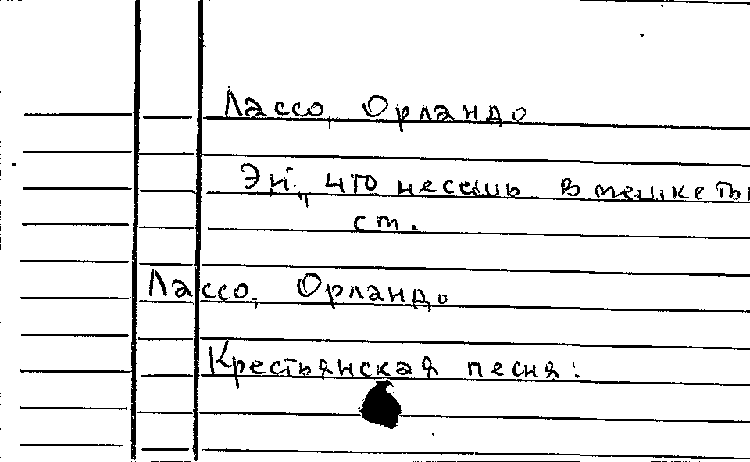 Лассо, Орландо
Эй, что несешь в мешке ты
ст.
Лассо, Орландо
Крестьянская песня: